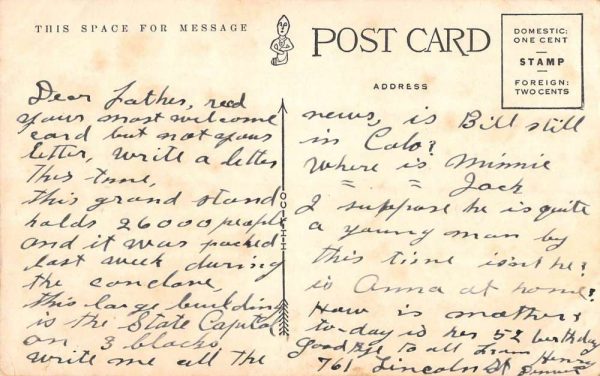 THIS SPACE FOR MESSAGE
POST CARD
DOMESTIC:
ONE CENT
STAMP
FOREIGN:
TWO CENTS
ADDRESS
Dear father, recd
your most welcome
card but not your
letter, write a letter
this time,
this grand stand
holds 26000 people
and it was packed
last week during
the conclave,
this large building
is the State Capital
on 3 blocks,
write me all the
news, is Bill still
in Colo?
Where is Minnie
" " Jack
I suppose he is quite
a young man by
this time isnt he?
is Anna at home?
How is mother
to-day is her 52 birthday
good bye to all from Henry
761 Lincoln St Denver